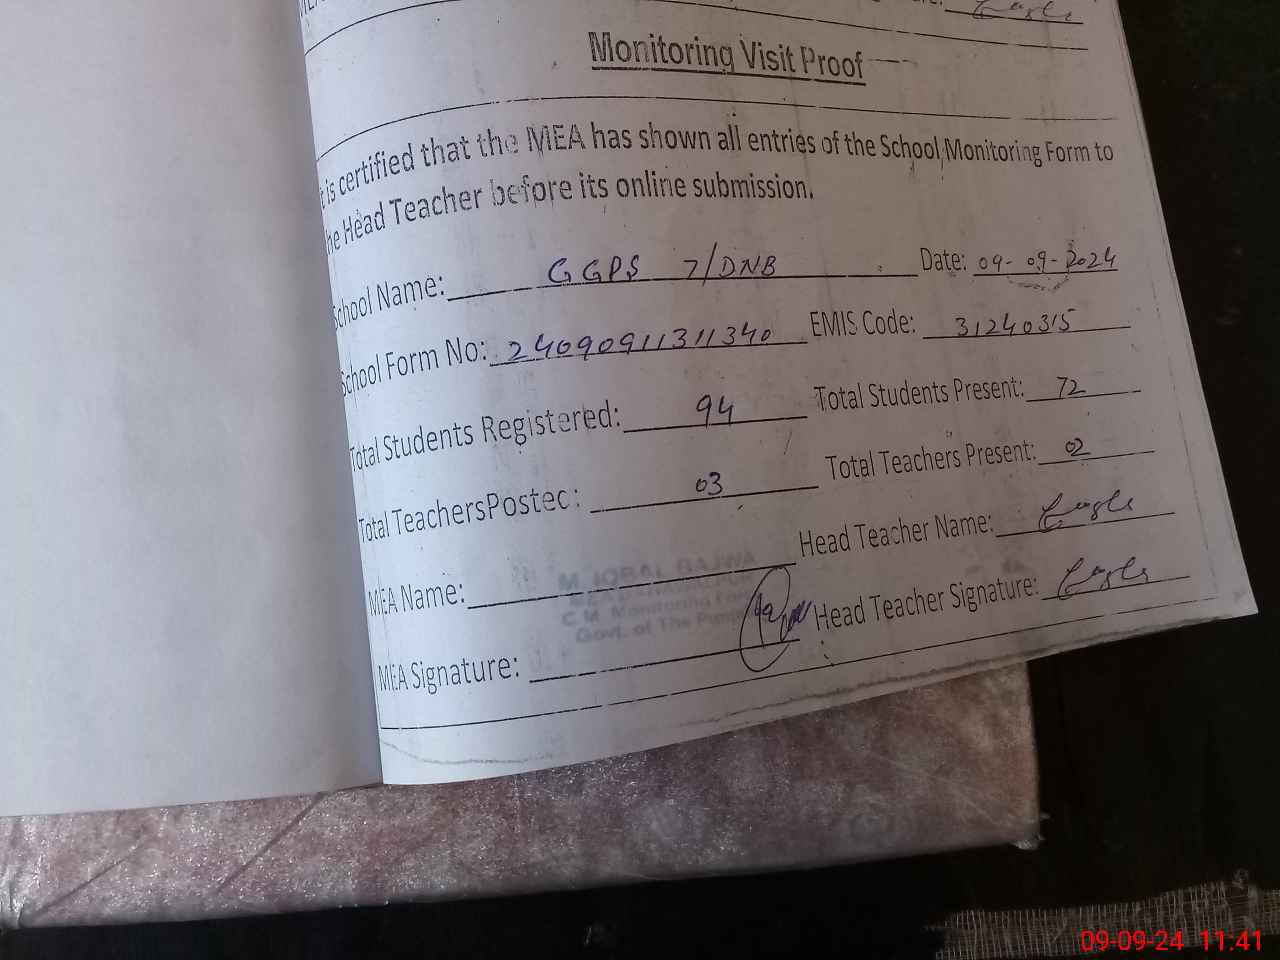 Monitoring Visit Proof
t is certified that the MEA has shown all entries of the School Monitoring Form to
he Head Teacher before its online submission.
School Name: GGPS 7/DNB Date: 09-09-2024
School Form No: 24090911311340 EMIS Code: 31240315
Total Students Registered: 94 Total Students Present: 72
Total TeachersPostec: 03 Total Teachers Present: 02
MEA Name: Head Teacher Name:
M IQBAL BAJWA
C M Monitoring
Govt. of The Punjab
MEA Signature: Head Teacher Signature:
09-09-24 11:41